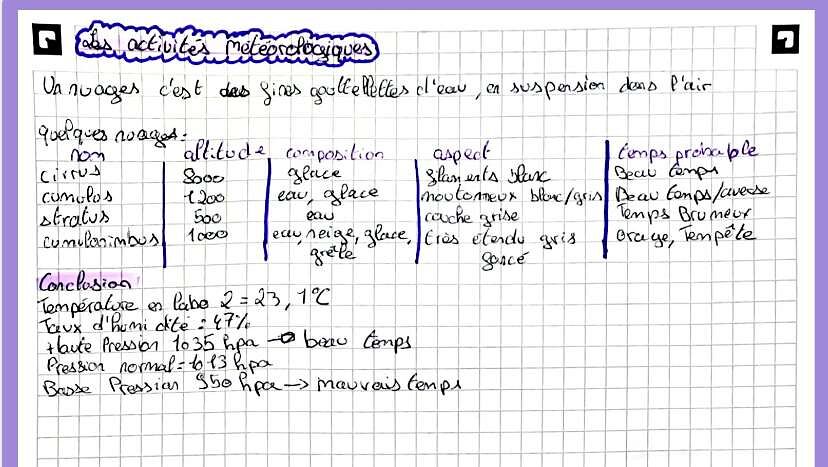 Les activités météorologiques
Un nuages c'est des fines gouttellettes d'eau, en suspension dans l'air
quelques nuages :
nom altitude composition aspect temps probable
cirrus 8000 glace filaments blanc Beau temps
cumulus 1200 eau, glace moutonneux blanc/gris Beau temps/averse
stratus 500 eau couche grise Temps Brumeux
cumulonimbus 1000 eau, neige, glace, grêle très étendu gris foncé orage, Tempête
Conclusion
Température en labo 2 = 23,1°C
Taux d'humidité : 47%
Haute Pression 1035 hpa → beau temps
Pression normal = 1013 hpa
Basse Pression 950 hpa → mauvais temps